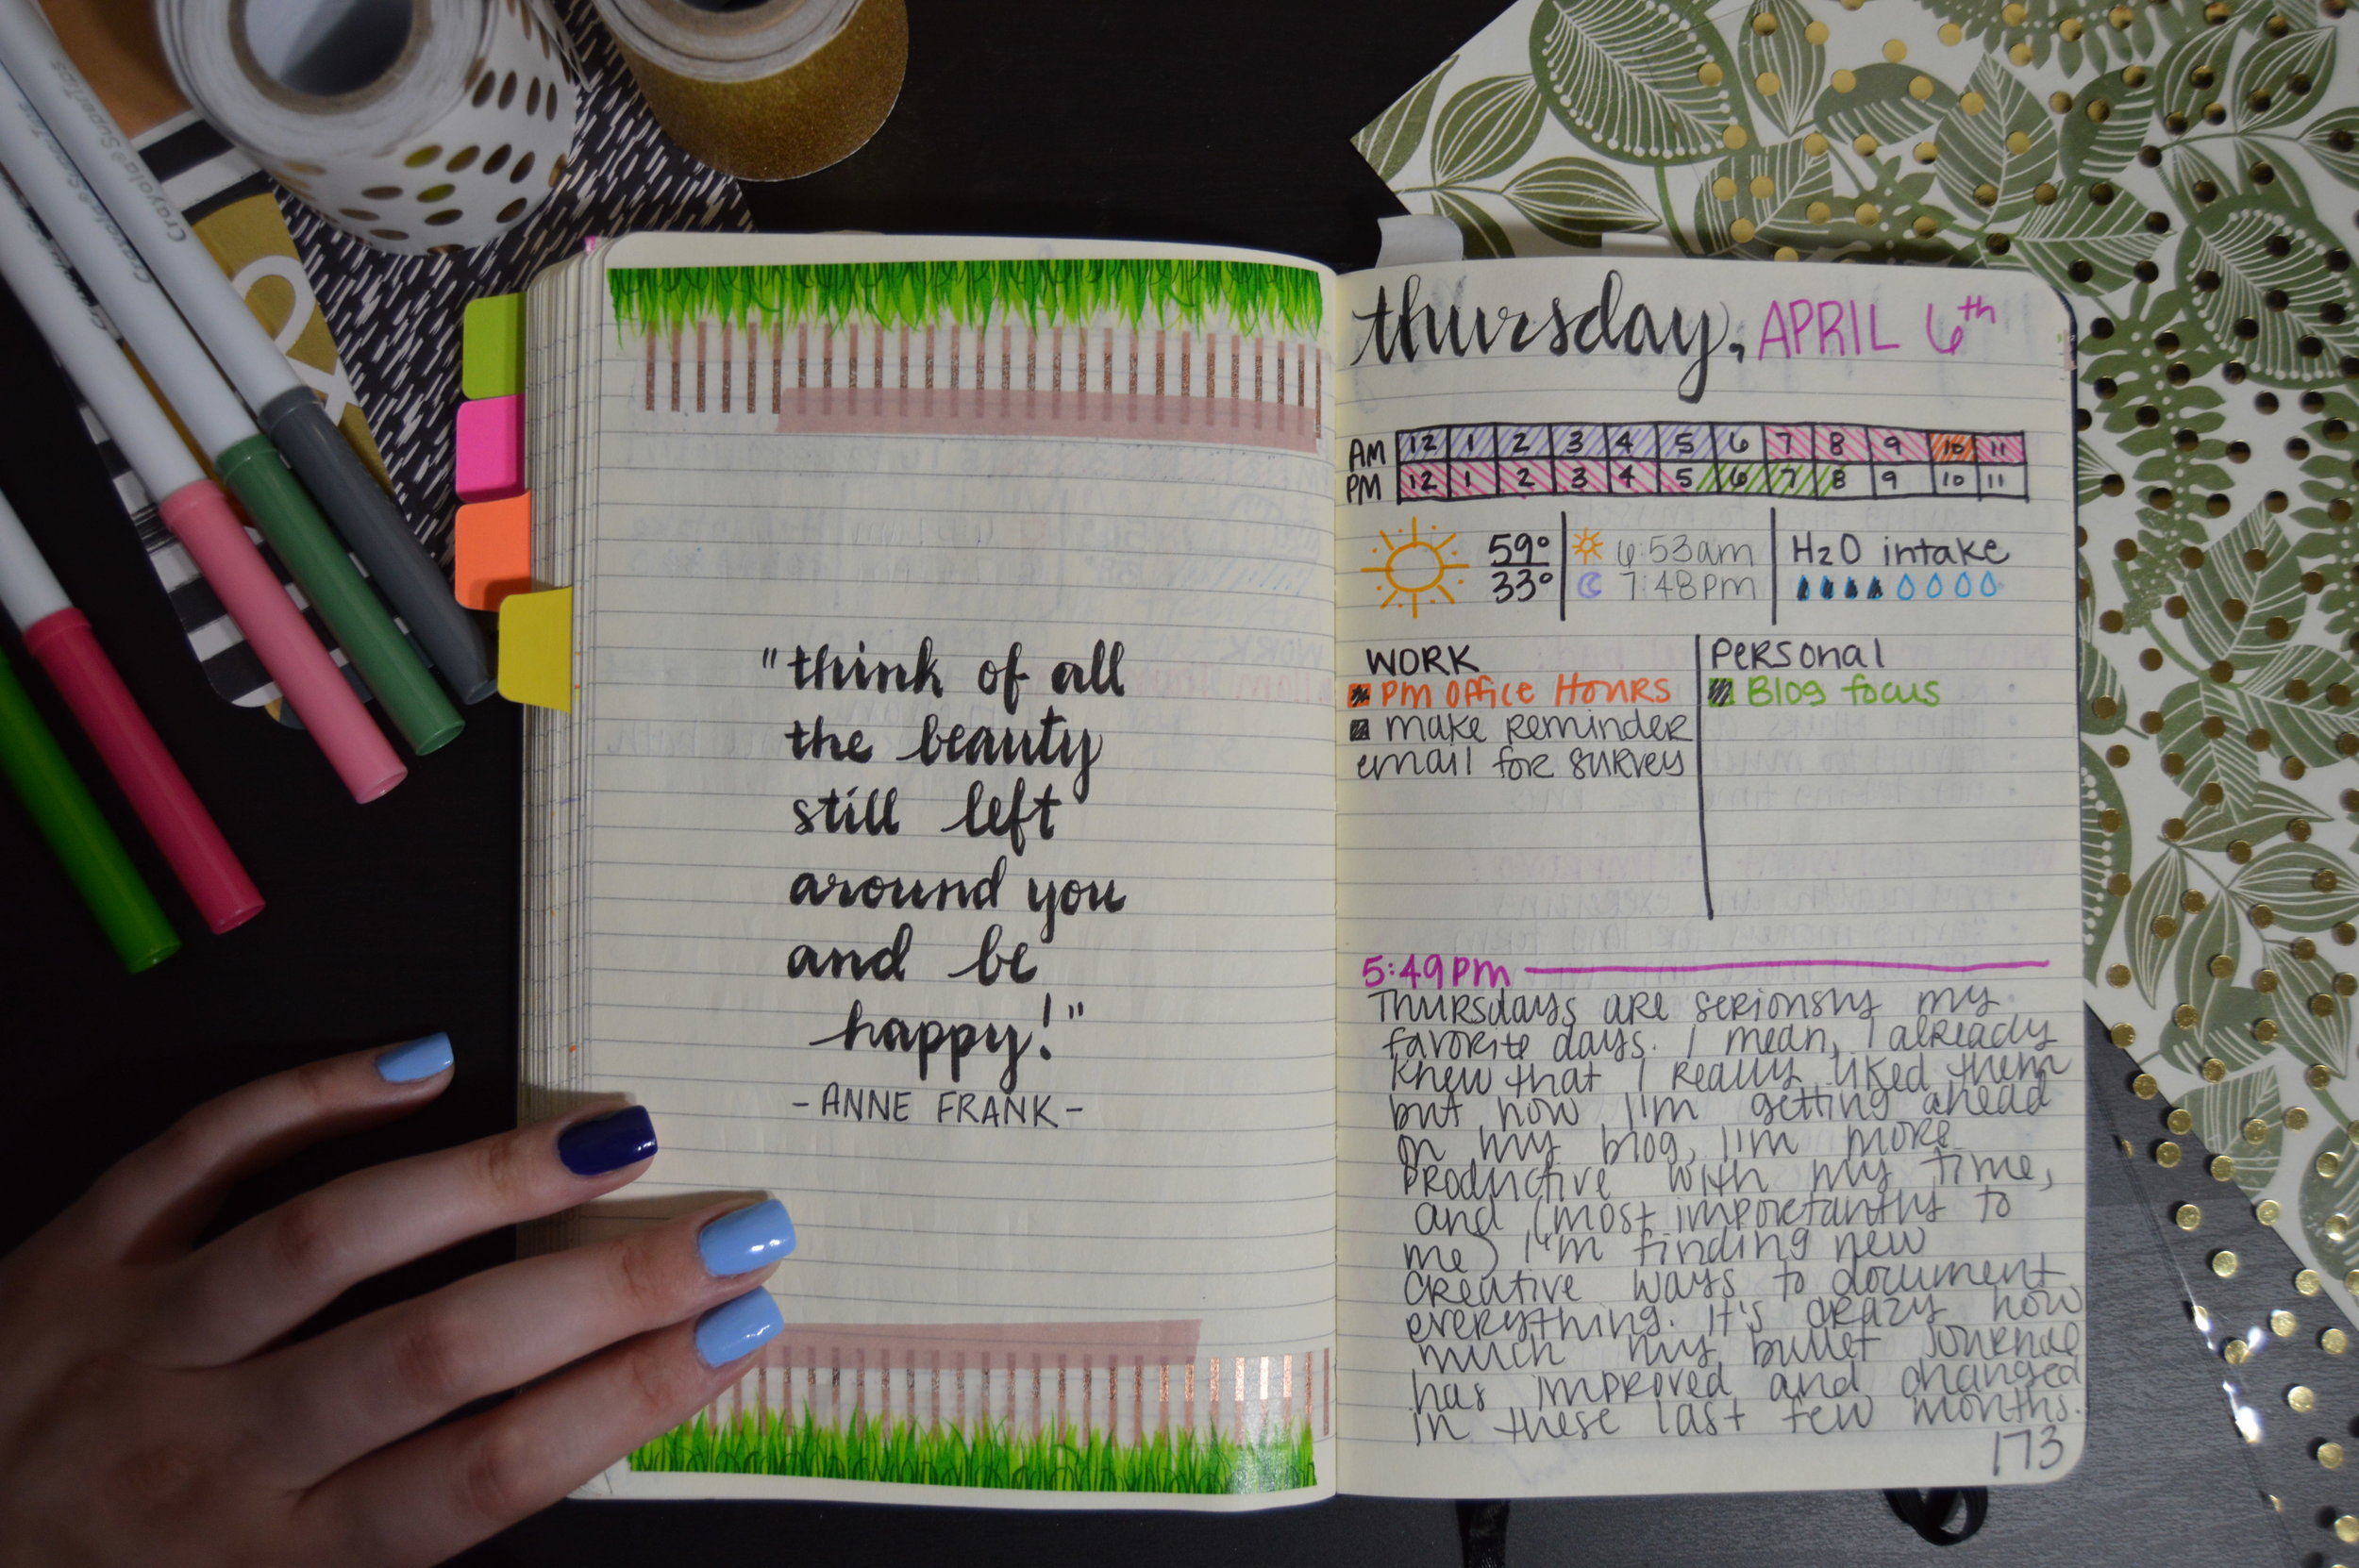 Crayola SuperTips
Crayola SuperTips
"think of all
the beauty
still left
around you
and be
happy!"
- ANNE FRANK -
thursday, APRIL 6th
AM 12 1 2 3 4 5 6 7 8 9 10 11
PM 12 1 2 3 4 5 6 7 8 9 10 11
59° 6:53am H2O intake
33° 7:48PM
WORK Personal
PM Office Hours Blog focus
make reminder
email for survey
5:49PM
Thursdays are seriously my
favorite days. I mean, I already
knew that I really liked them
but now I'm getting ahead
on my blog, I'm more
productive with my time,
and (most importantly to
me) I'm finding new
creative ways to document
everything. It's crazy how
much my bullet journal
has improved and changed
in these last few months.
173